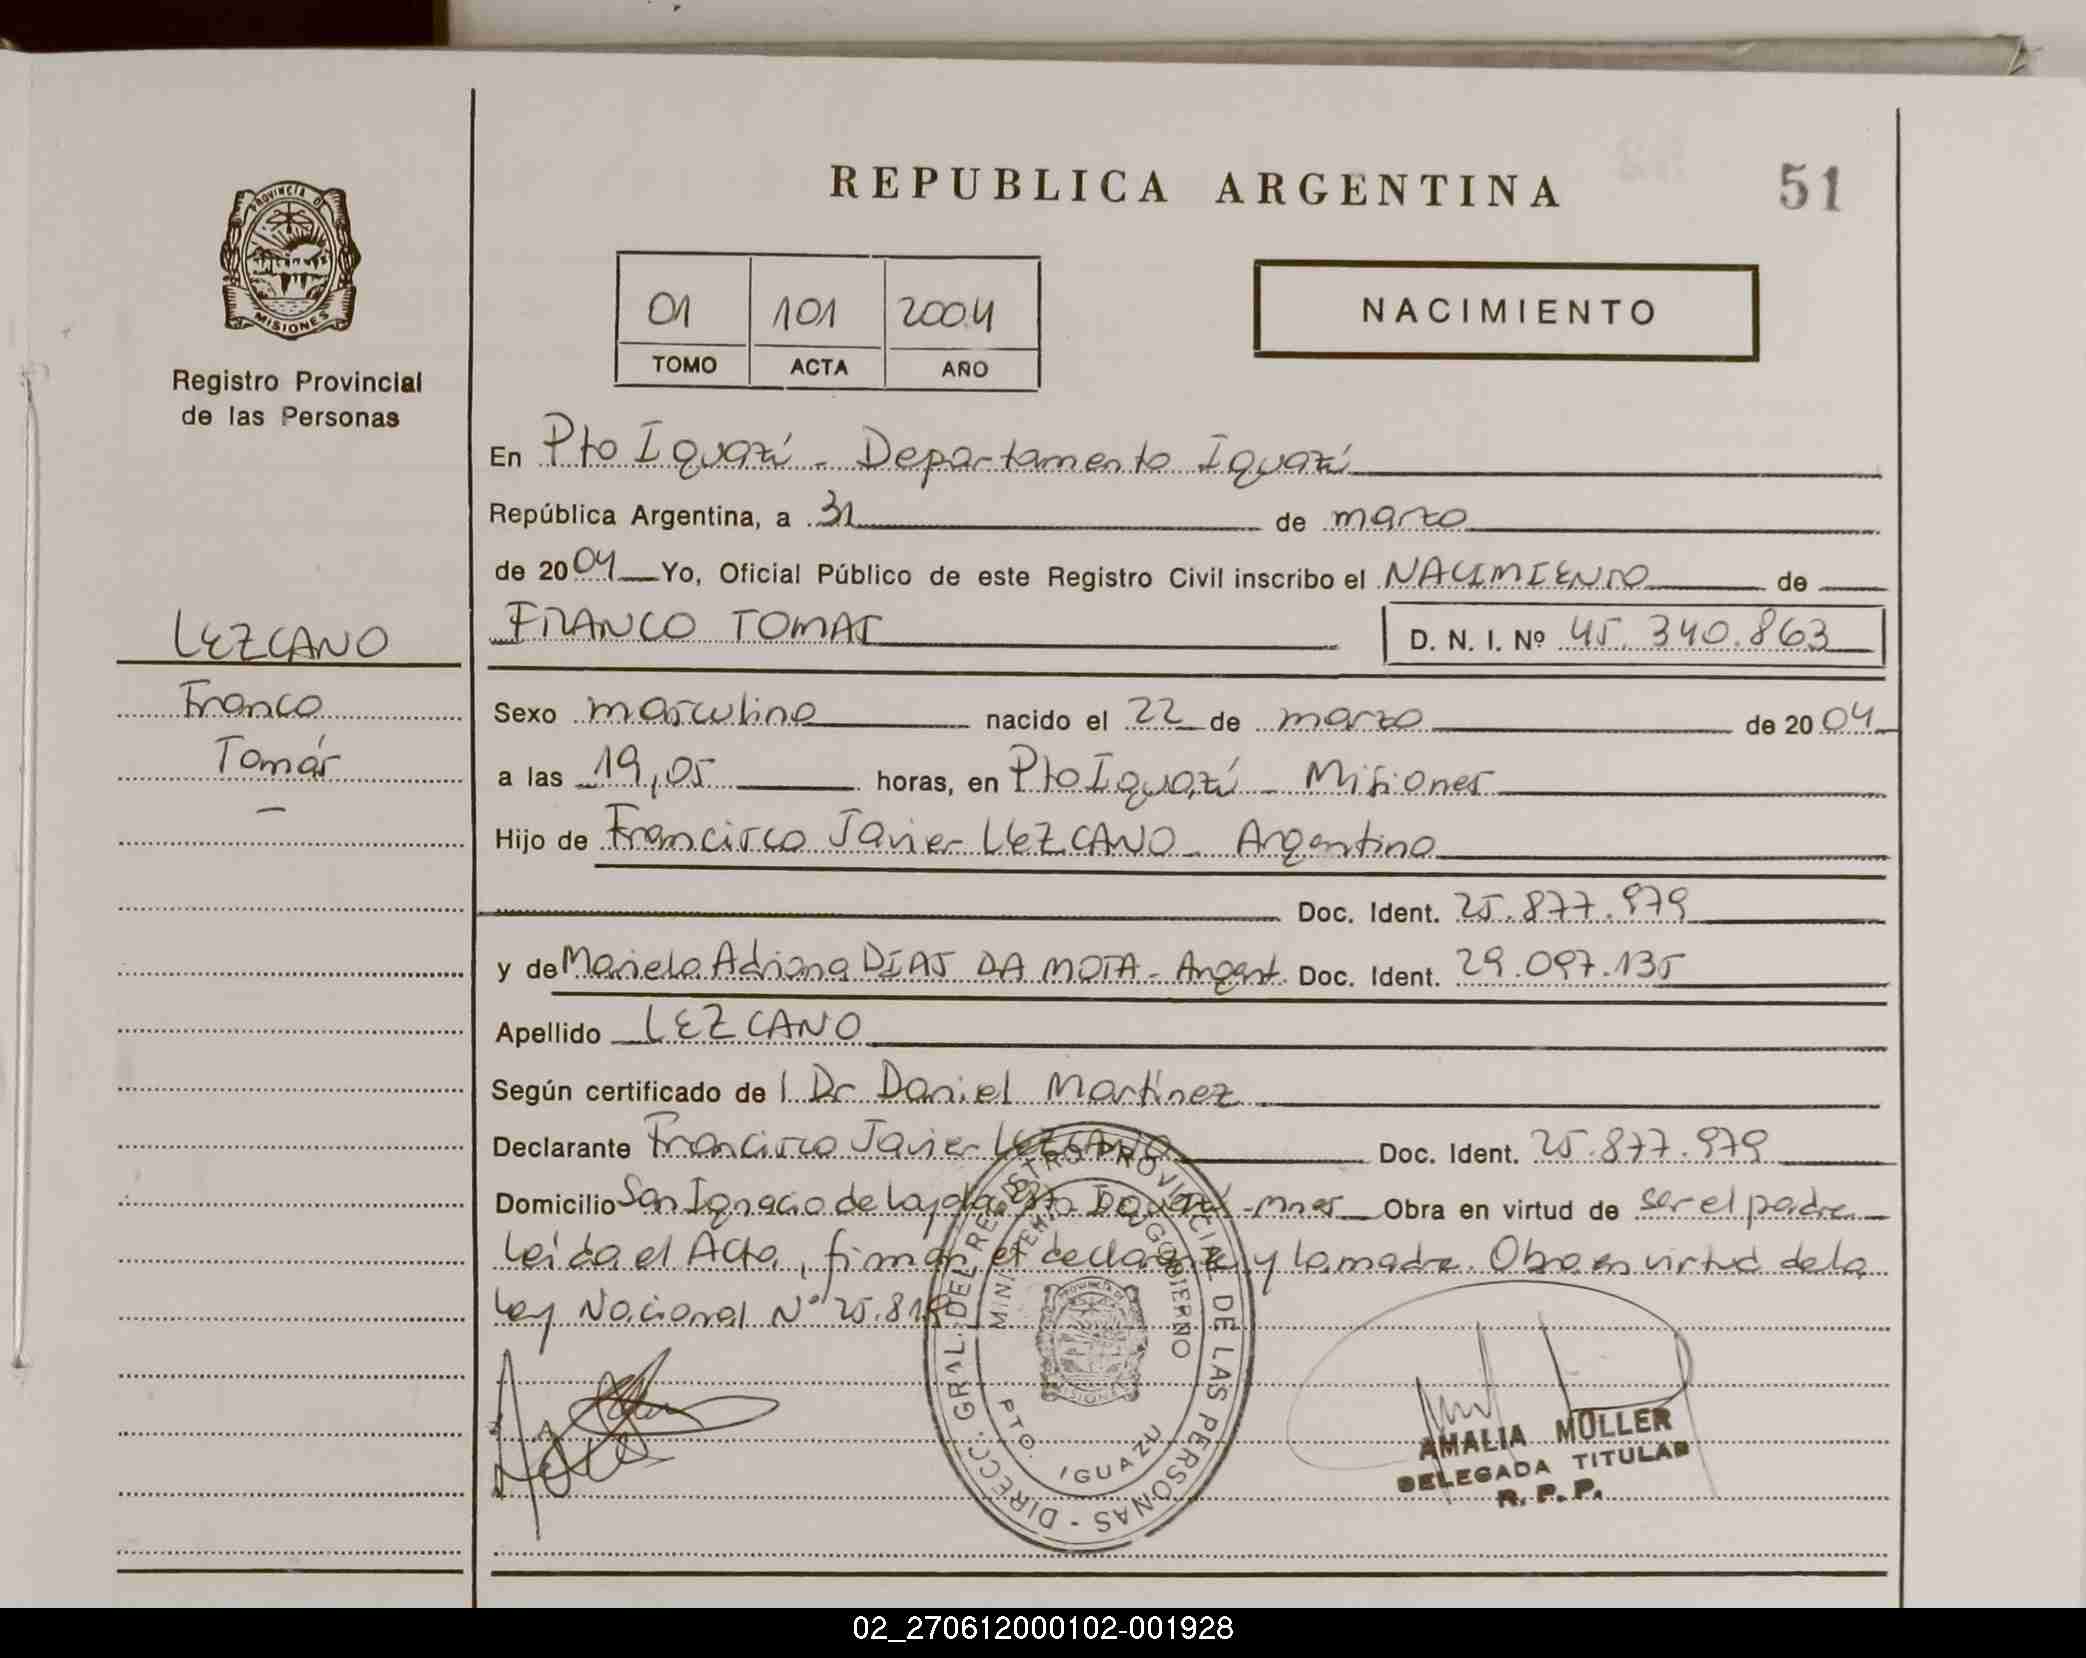 REPUBLICA ARGENTINA
51
PROVINCIA D
MISIONES
Registro Provincial
de las Personas
01 101 2004
TOMO ACTA AÑO
NACIMIENTO
En Pto Iguazú - Departamento Iguazú
República Argentina, a 31 de marzo
de 2004 Yo, Oficial Público de este Registro Civil inscribo el NACIMIENTO de
FRANCO TOMAS D. N. I. Nº 45.340.863
LEZCANO
Franco
Tomás
-
Sexo masculino nacido el 22 de marzo de 2004
a las 19,05 horas, en Pto Iguazú - Misiones
Hijo de Francisco Javier LEZCANO - Argentino
Doc. Ident. 25.877.979
y de Mariela Adriana DIAS DA MOTA - Argent. Doc. Ident. 29.097.135
Apellido LEZCANO
Según certificado del Dr Daniel Martínez
Declarante Francisco Javier LEZCANO Doc. Ident. 25.877.979
Domicilio San Ignacio de Loyola Pto Iguazú - Mnes Obra en virtud de ser el padre
Leída el Acta, firman el declarante y la madre. Obra en virtud de la
Ley Nacional Nº 25.819
DIRECC. GRAL. DEL REGISTRO PROVINCIAL DE LAS PERSONAS -
GOBIERNO
PTO. IGUAZU
MISIONES
AMALIA MULLER
DELEGADA TITULAR
R. P. P.
02_270612000102-001928